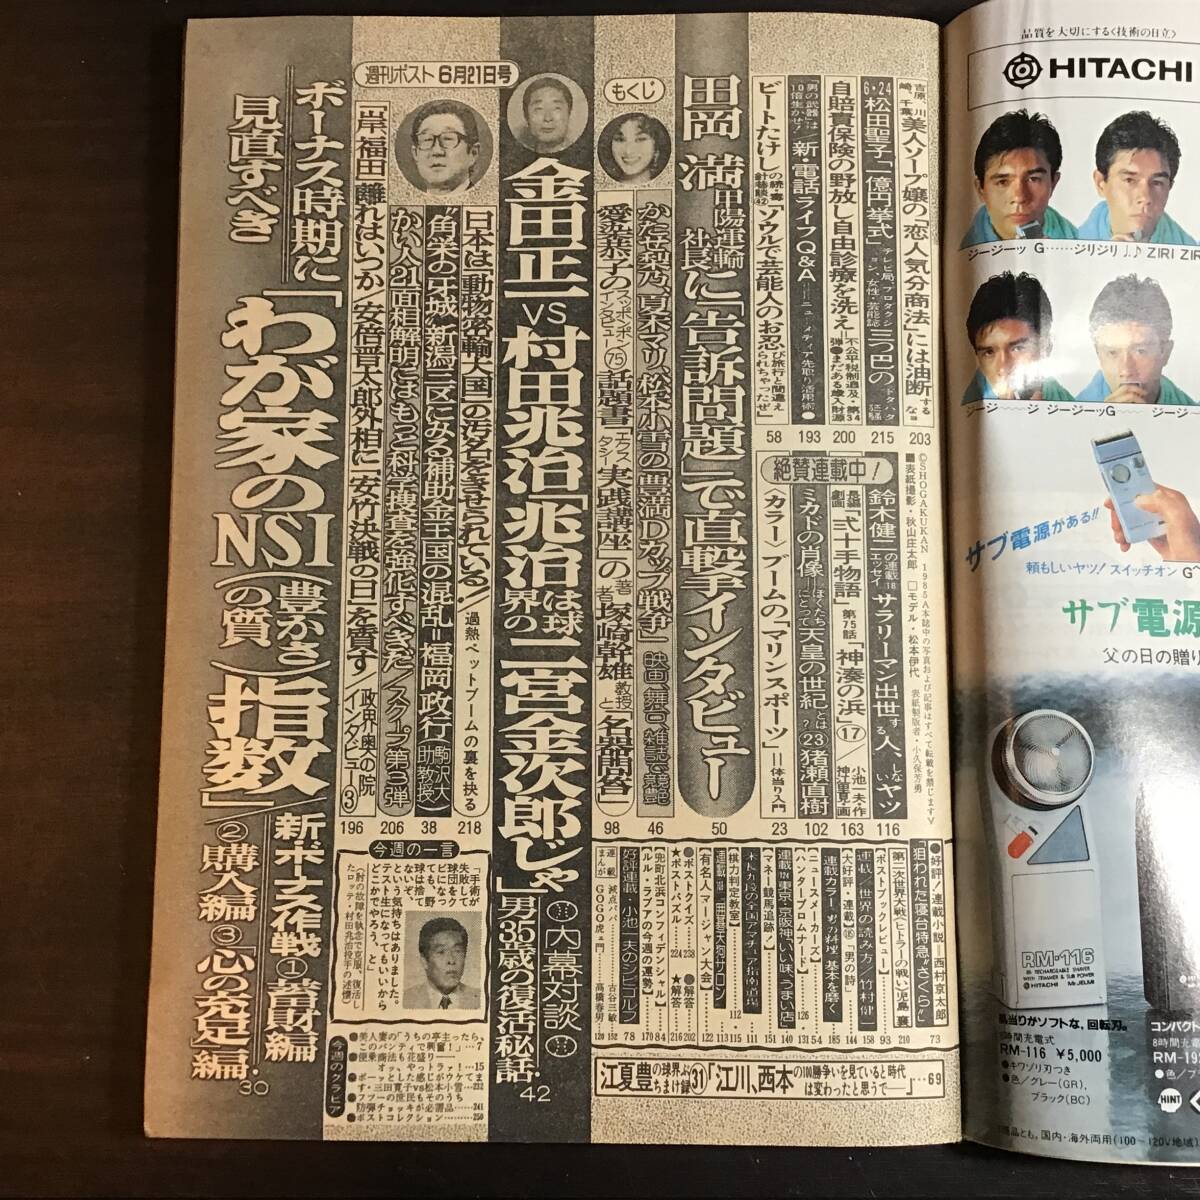 週刊ポスト 6月21日号
もくじ
吉原、川崎、千葉 美人ソープ嬢の「恋人気分商法」には油断するな 203
6・24松田聖子「一億円挙式」テレビ局、プロダクション、女性・芸能誌 三つ巴のドタバタ 215
自賠責保険の野放し自由診療を洗え 不公平税制追及・第34弾 まだある歳入財源 200
「男の武器」は10倍生かせ! 新・電話ライフQ&A ニューメディア先取り活用術 193
ビートたけしの ソウルで芸能人のお忍び旅行と間違えられちゃったぜ 58
田岡 満 甲陽運輸社長に「告訴問題」で直撃インタビュー 50
かたせ梨乃、夏木マリ、松本小雪の「豊満Dカップ戦争」 46
愛染恭子のスッポンポンインタビュー 75 話題書 エクスタシー実践講座」の著者 塚崎幹雄教授と「名器問答」 98
金田正一VS村田兆治「兆治は球界の二宮金次郎じゃ」男35歳の復活秘話 内幕対談 42
日本は「動物密輸大国」の汚名をきせられている! 過熱ペットブームの裏を抉る 218
“角栄の牙城”新潟三区にみる補助金王国の混乱=福岡政行(駒沢大助教授) 38
かい人21面相解明にはもっと科学捜査を強化すべきだ/スクープ第3弾 206
「岸、福田」離れはいつか/安倍晋太郎外相に「安竹決戦の日」を質す/政界・奥の院インタビュー③ 196
ボーナス時期に見直すべき「わが家のNSI(豊かさの質)指数」
新・ボーナス作戦①蓄財編②購入編③「心の充足」編 30
©SHOGAKUKAN 1985 A 本誌中の写真および記事はすべて転載を禁じます
■表紙撮影・秋山庄太郎 □モデル・松本伊代 表紙製版者・小久保芳勇
絶賛連載中!
鈴木健二の連載エッセイ サラリーマン出世する人、しないヤツ 116
長編劇画「弐十手物語」第75話「神湊の浜」⑰ 小池一夫・作 神江里見・画 163
ミカドの肖像 ぼくたちにとって天皇の世紀とは?㉓ 猪瀬直樹 102
〈カラー〉ブームの「マリンスポーツ」=体当り入門 23
●好評!連載小説 西村京太郎「狙われた寝台特急“さくら”」 73
第二次世界大戦〈ヒトラーの戦い〉児島 襄 210
ポストブックレビュー 92
連載/世界の読み方/竹村健一 158
大好評・連載「男の詩」 145
連載カラー、男の料理 基本を磨く
ニュースメーカーズ
ハンタープロムナード 126
連載 東京・京阪神いい味、うまい店 131
マネー・競馬追跡! 140
有名人〈マージャン大会〉 111
棋力判定教室 112
●ポストクイズ 238 ●解答 202
★ポストパズル 224 ★解答
兜町北浜コンフィデンシャル 84
ルル・ラブアの今週の運勢 170
好評連載・小池一夫のシビゴルフ 78
連載まんが 減点パパ 古谷三敏 152
GOGO虎ェ門 高橋春男 120
江夏豊の球界ぶちまけ録㉛「江川、西本の100勝争いを見ていると時代は変わったと思うで」…69
今週の一言
「手術が失敗してクビになったら、球団をクビになっても、野球は捨てないぞ、テスト生になってもいいからどこかでやろう、という気持ちはありました」
今週のグラビア
●美人妻の「うちの亭主ったら、このパンティで興奮!」…7
●便乗商法も花盛り——オッ、やっトラァ!…15
●ボーッとした感じがウケてます・三田寛子vs松本小雪…232
●フツーの庶民もそのうち防弾チョッキが必需品…241
●ポストコレクション…250
品質を大切にする〈技術の日立〉
HITACHI
ジージーッ G……ジリジリ♩♪ ZIRI ZIR
ジージ〜〜ジ ジージーッG〜〜〜ジージー
サブ電源がある!!
頼もしいヤツ! スイッチオン G
サブ電源
父の日の贈り
RM-116
RECHARGEABLE SHAVER
WITH TRIMMER & SUB POWER
HITACHI Mr.JELMI
肌当りがソフトな、回転刃。
8時間充電式
RM-116 ¥5,000
●キワゾリ刃つき
●色/グレー(GR)、
ブラック(BC)
コンパク
8時間充電
RM-19
●色/ブ
HINT
商品とも、国内・海外両用(100〜120V地域)